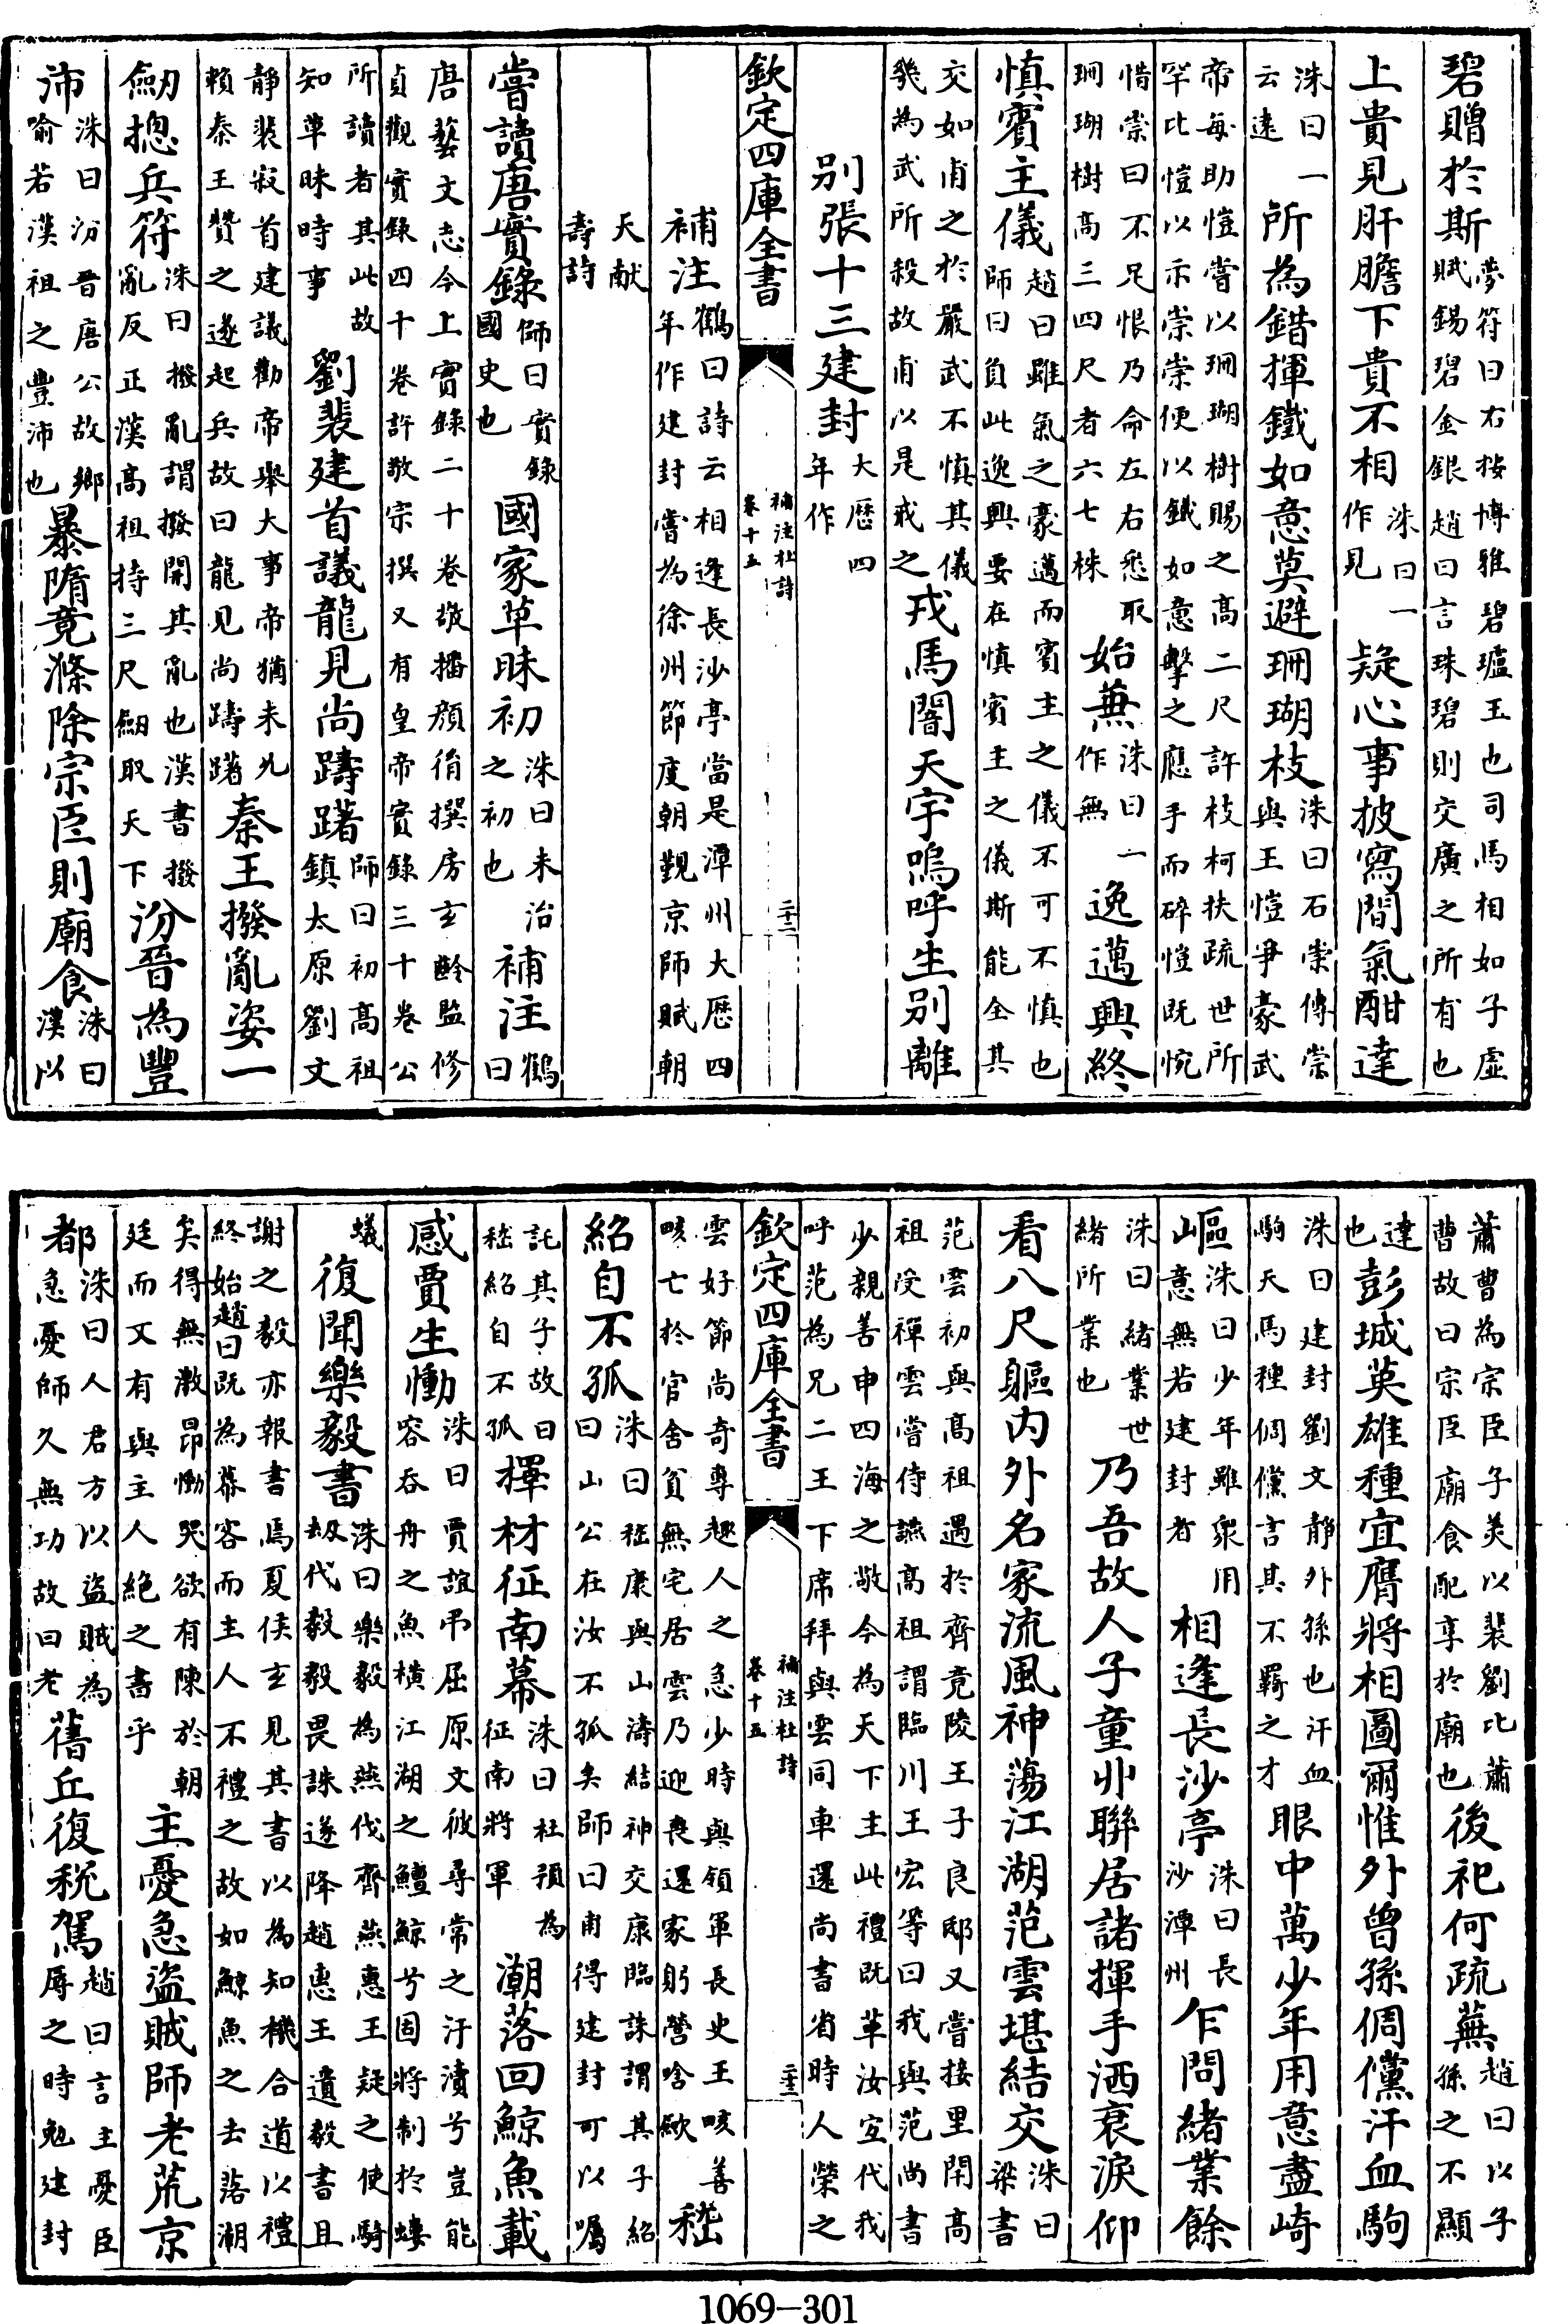 碧贈於斯夢符曰右按博雅碧瓐玉也司馬相如子虚賦錫碧金銀趙曰言珠碧則交廣之所有也
上貴見肝膽下貴不相洙曰一作見疑心事披寫間氣酣達
洙曰一云逺所為錯揮鐵如意莫避珊瑚枝洙曰石崇傳崇與王愷爭豪武
帝每助愷嘗以珊瑚樹賜之髙二尺許枝柯扶疏世所罕比愷以示崇崇便以鐵如意擊之應手而碎愷既惋
惜崇曰不足恨乃命左右悉取珊瑚樹髙三四尺者六七株始兼洙曰一作無逸邁興終
慎賓主儀趙曰雖氣之豪邁而賓主之儀不可不慎也師曰負此逸興要在慎賓主之儀斯能全其
交如甫之於嚴武不慎其儀幾為武所殺故甫以是戒之戎馬闇天宇嗚呼生别離
别張十三建封大厯四年作
欽定四庫全書 補注杜詩 卷十五 二十二
補注鶴曰詩云相逢長沙亭當是潭州大厯四年作建封嘗為徐州節度朝覲京師賦朝
天献壽詩
嘗讀唐實錄師曰實錄國史也國家草昧初洙曰未治之初也補注鶴曰
唐藝文志今上實錄二十巻敬播顔𦙍撰房玄齡監修貞觀實錄四十巻許敬宗撰又有皇帝實錄三十巻公
所讀者其此故知草昧時事劉裴建首議龍見尚躊躇師曰初髙祖鎮太原劉文
静裴寂首建議勸帝舉大事帝猶未允賴秦王贊之遂起兵故曰龍見尚躊躇秦王撥亂姿一
劒揔兵符洙曰撥亂謂撥開其亂也漢書撥亂反正漢高祖持三尺劒取天下汾晉為豐
沛洙曰汾晉唐公故鄉喻若漢祖之豐沛也暴隋竟滌除宗臣則廟食洙曰漢以
蕭曹為宗臣子美以裴劉比蕭曹故曰宗臣廟食配享於廟也後祀何疏蕪趙曰以子孫之不顯
達也彭城英雄種宜膺將相圖爾惟外曾孫倜儻汗血駒
洙曰建封劉文静外孫也汗血駒天馬種倜儻言其不羈之才眼中萬少年用意盡崎
嶇洙曰少年雖衆用意無若建封者相逢長沙亭洙曰長沙潭州乍問緒業餘
洙曰緒業世緒所業也乃吾故人子童丱聯居諸揮手洒衰淚仰
看八尺軀内外名家流風神蕩江湖范雲堪結交洙曰梁書
范雲初與髙祖遇於齊竟陵王子良邸又嘗接里閈高祖受禪雲嘗侍讌髙祖謂臨川王宏等曰我與范尚書
少親善申四海之敬今為天下主此禮既革汝宜代我呼范為兄二王下席拜與雲同車還尚書省時人榮之
欽定四庫全書 補注杜詩 卷十五 二十三
雲好節尚奇專趣人之急少時與領軍長史王畡善畡亡於官舍貧無宅居雲乃迎喪還家躬營唅歛嵇
紹自不孤洙曰嵇康與山濤結神交康臨誅謂其子紹曰山公在汝不孤矣師曰甫得建封可以囑
託其子故曰嵇紹自不孤擇材征南幕洙曰杜預為征南將軍潮落回鯨魚載
感賈生慟洙曰賈誼弔屈原文彼尋常之汙瀆兮豈能容吞舟之魚橫江湖之鱣鯨兮固將制於螻
蟻復聞樂毅書洙曰樂毅為燕伐齊燕惠王疑之使騎劫代毅毅畏誅遂降趙惠王遺毅書且
謝之毅亦報書焉夏侯玄見其書以為知機合道以禮終始趙曰既為幕客而主人不禮之故如鯨魚之去落潮
矣得無激昂慟哭欲有陳於朝廷而又有與主人絶之書乎主憂急盗賊師老荒京
都洙曰人君方以盗賊為急憂師久無功故曰老舊丘復税駕趙曰言主憂臣辱之時勉建封
1069—301